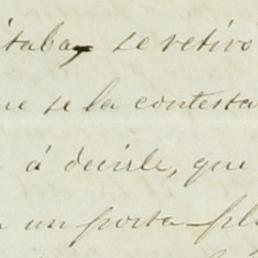 itaba, se retiro
ue se la contesta
á decirle, que
un porta-pl